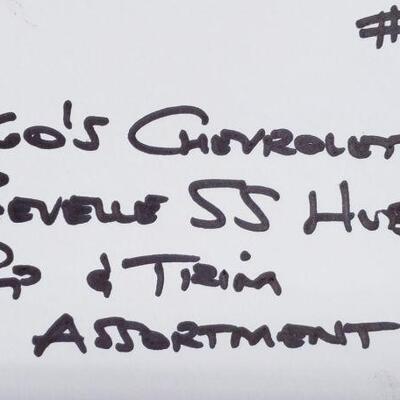 #
60's CHEVROLET
CHEVELLE SS HUB
CAP & TRIM
ASSORTMENT